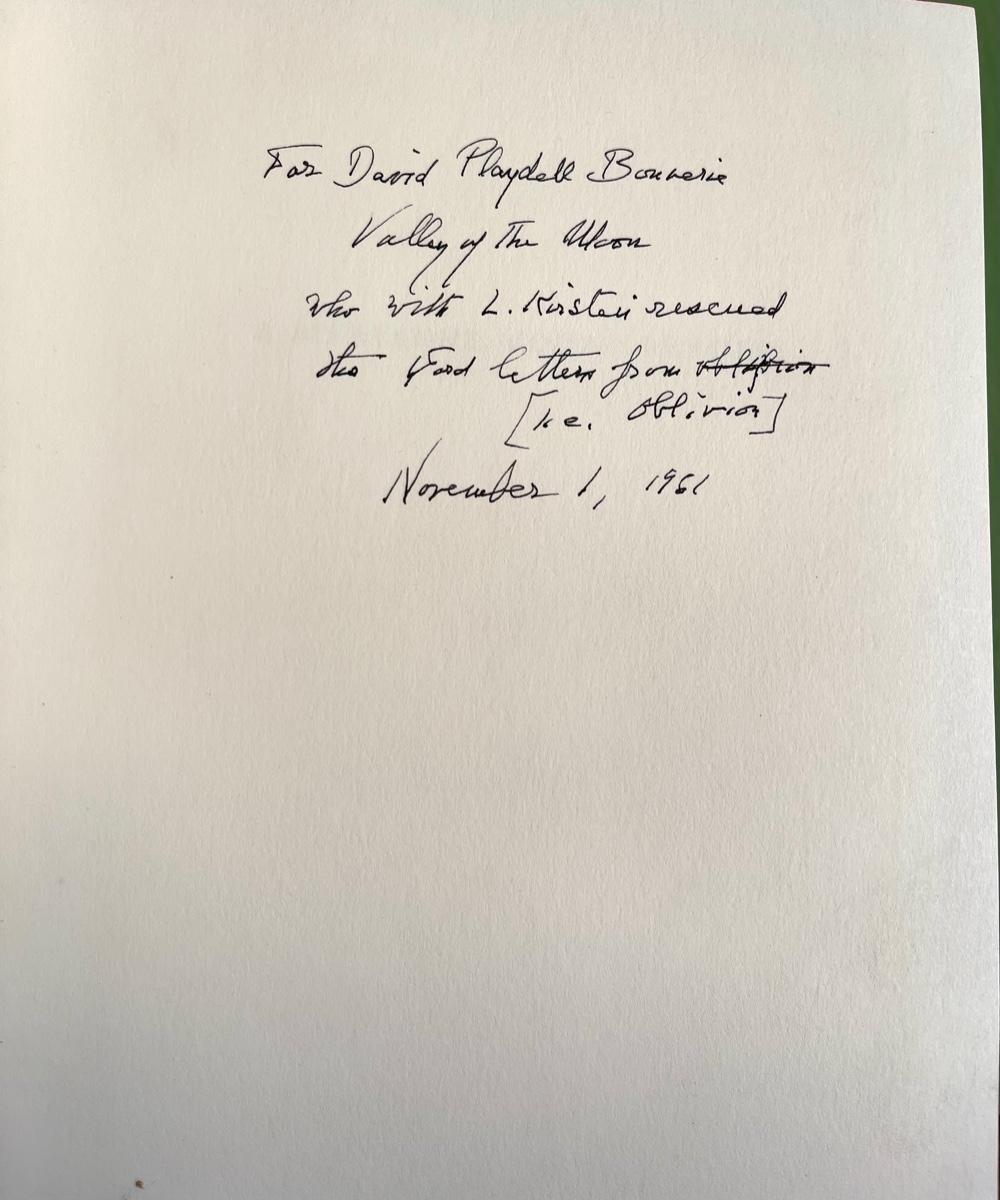 For David Playdell Bouverie
Valley of The Moon
who with L. Kirstein rescued
the Ford letters from ~~oblifion~~
[i.e. oblivion]
November 1, 1961